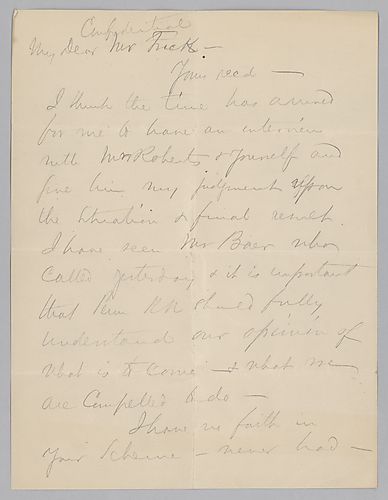 Confidential
My Dear Mr Frick —
Yours recd —
I think the time has arrived
for me to have an interview
with Mr Roberts & yourself and
give him my judgment upon
the situation & final result.
I have seen Mr Baer who
called yesterday & it is important
that Penn RR should fully
understand our opinion of
what is to come — & what we
are compelled to do —
I have no faith in
your scheme — never had —